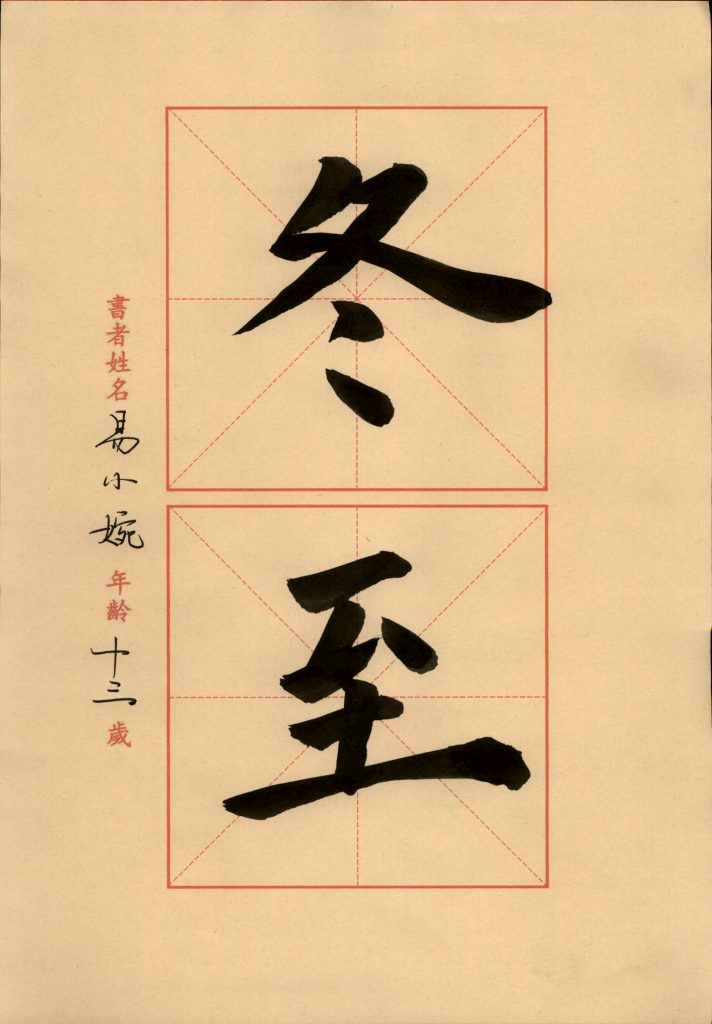 冬至
書者姓名易小婉年齡十三歲